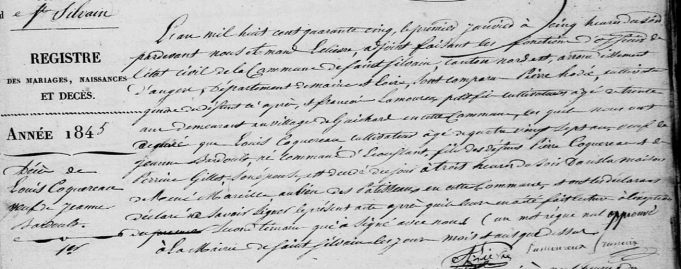 St Silvain
REGISTRE
DES MARIAGES, NAISSANCES
ET DÉCÈS.
ANNÉE 1845
Décès de
Louis Coquereau
veuf de Jeanne
1er
L'an mil huit cent quarante cinq, le premier janvier à cinq heures du soir
pardevant nous adjoint faisant les fonctions d'officier de
l'état civil de la Commune de Saint Silvain, canton nord est, arrondissement
d'angers, Département de maine et Loire, sont comparus Pierre cultivateur
du défunt ci après, et françois Lamoureux cultivateur agé de trente
ans demeurant au village de en cette Commune, les quels nous ont
déclaré que Louis Coquereau cultivateur agé de quatre vingt sept ans, veuf de
jeanne né commune d'Ecouflant, fils des défunts Pierre Coquereau et de
Perrine Gillot son épouse, est décédé du jour à trois heures du soir Dans la maison
de en cette Commune, et ont les déclarans
déclaré ne savoir signer le présent acte après que lecture en a été faite à l'exception
du second témoin qui a signé avec nous (un mot rayé nul approuvé
à La Mairie de Saint Silvain les jour mois et an que dessus
Lamoureux